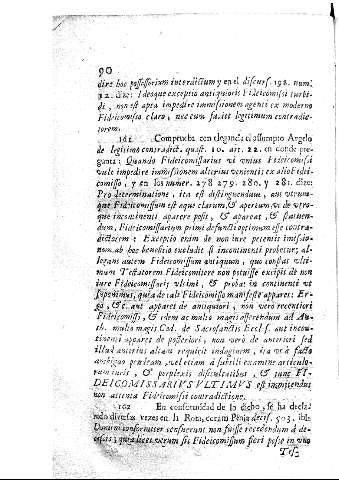 90
dire hoc possessorium interdictum y en el discurs. 198. num.
32. dize: Ideoque exceptio antiquioris Fideicomissi turbi-
di, non est apta impedire immissionem agenti ex moderno
Fideicomisso claro, nec eum facit legitimum contradic-
torem.
161 Comprueba con elegancia el assumpto Angelo
de legitimo contradict. quæst. 10. art. 22. en donde pre-
gunta: Quando Fideicomissarius vi unius Fideicomissi
vult impedire immissionem alterius venientis ex alio Fidei
comisso, y en los numer. 278 279. 280. y 281. dize:
Pro determinatione, ita est distinguendum, aut utrum-
que Fideicomissum est æque clarum, & apertum vt de utro-
que incontinenti apparere possit, & apareat, & statuen-
dum, Fideicomissarium primi defuncti optimum esse contra-
dictorem: Exceptio enim de non iure petentis imissio-
nem ab hoc beneficio excludit si incontinenti probetur; al-
legans autem Fideicomissum antiquum, quo constat ulti-
mum Testatorem Fideicomitere non potuisse excipit de non
iure Fideicomissarij vltimi, & probat in continenti vt
supponimus, quia de tali Fideicomisso manifeste apparet: Er-
go, &c. aut apparet de antiquiori, non vero recentiori
Fideicomisso, & idem ac multo magis asserendum ad Au-
th. multo magis Cod. de Sacrosanctis Eccles. aut incon-
tinenti apparet de posteriori, non vero de anteriori sed
illud anterius altam requirit indaginem, ita vt à facto
ambiguo pendeam, vel etiam à subtili examine articulo-
rum iuris, & perplexis dificultatibus, & tunc FI-
DEICOMISSARIUS ULTIMUS est immitendus
non attenta Fideicomissi contradictione.
162 En conformidad de lo dicho, se ha decla-
rado diversas vezes en la Rota, coram Penia decis. 503. ibi:
Domini conformiter censuerunt non fuisse recedendum à de-
cisis; quia licet verum sit Fideicomissum fieri posse in uno
Tes-